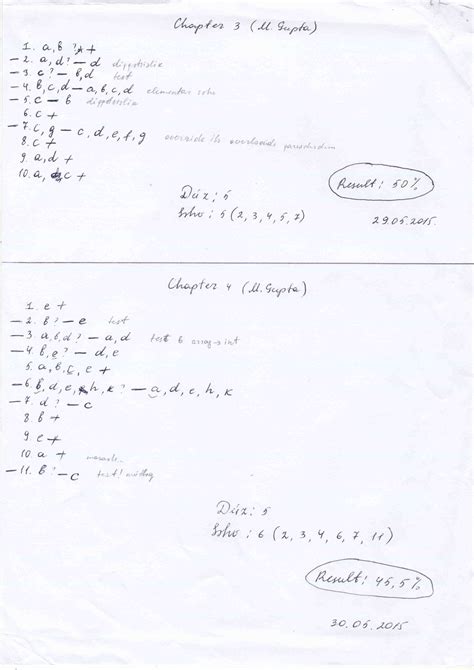 Chapter 3 (M. Gupta)
1. a, b ? +
– 2. a, d? – d
– 3. c? – b, d test
– 4. b, c, d – a, b, c, d elementar
– 5. c – b
6. c +
– 7. c, g – c, d, e, f, g
8. c +
9. a, d +
10. a, c +
Result: 50%
Düz: 5
Səhv: 5 (2, 3, 4, 5, 7)
29.05.2015.
Chapter 4 (M. Gupta)
1. e +
– 2. b? – e test
– 3 a, b, d? – a, d test
– 4. b, e? – d, e
5. a, b, c, e +
– 6. b, d, e, h, k? – a, d, e, h, k
– 7. d? – c
8. b +
9. c +
10. a +
– 11. b? – c test!
Düz: 5
Səhv: 6 (2, 3, 4, 6, 7, 11)
Result: 45,5%
30.05.2015